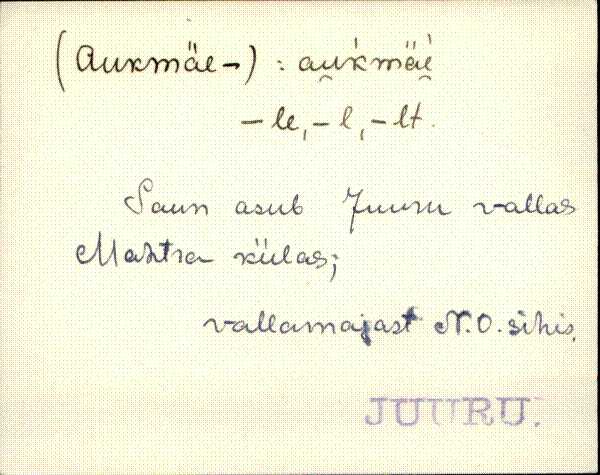 (Aukmäe-) : au̯k̀mäè̯
-le, -l, -lt.
Saun asub Juuru vallas
Mahtra külas;
vallamajast N.O. sihis.
JUURU.